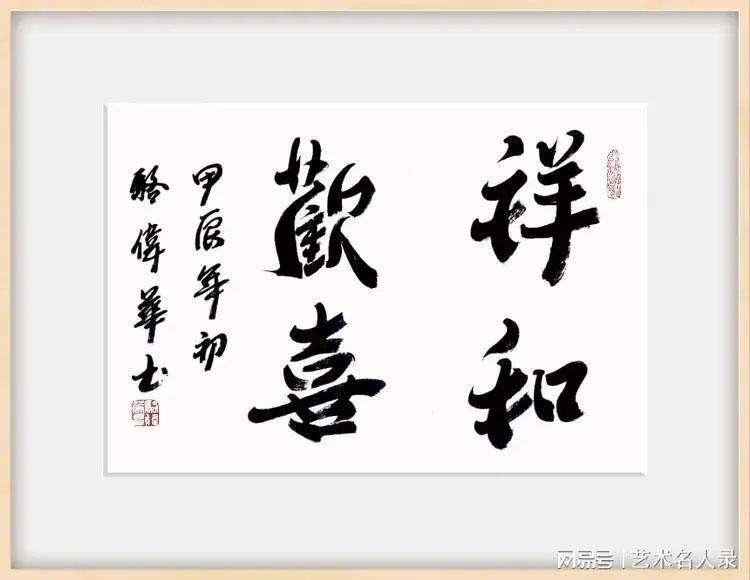 祥和
歡喜
甲辰年初
駱偉華書
网易号 | 艺术名人录